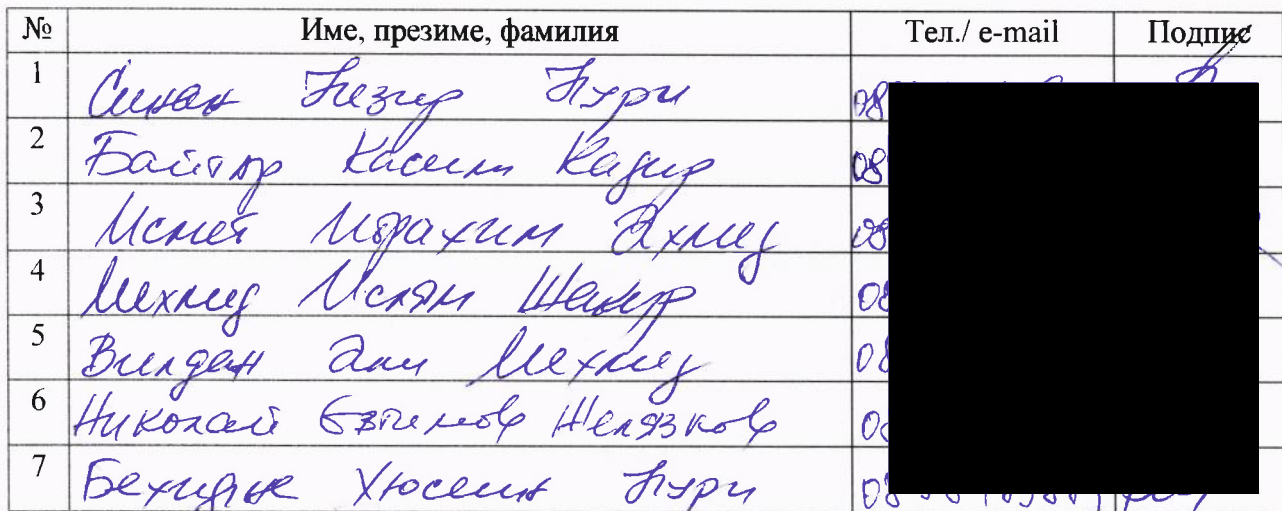 № Име, презиме, фамилия Тел./ e-mail Подпис
1 Синан Незир Нури 08
2 Байтър Касим Кадир 08
3 Исмет Ибрахим Ахмед 08
4 Мехмед Ислям Шакир 08
5 Вилдан Али Мехмед 08
6 Николай Евтимов Желязков 0
7 Бехидже Хюсеин Нури 08